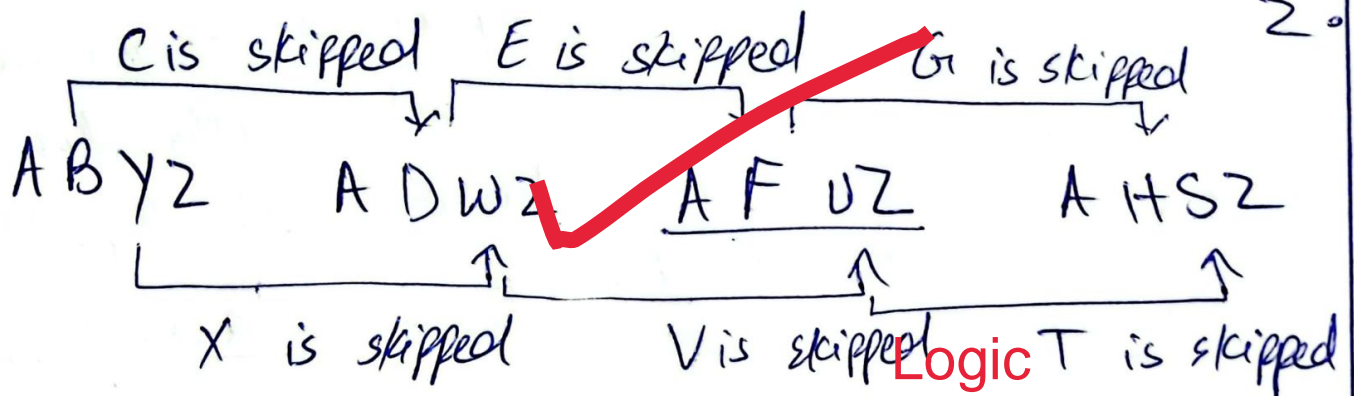 2.
C is skipped E is skipped G is skipped
A B Y Z A D W Z A F U Z A H S Z
X is skipped V is skipped T is skipped
Logic